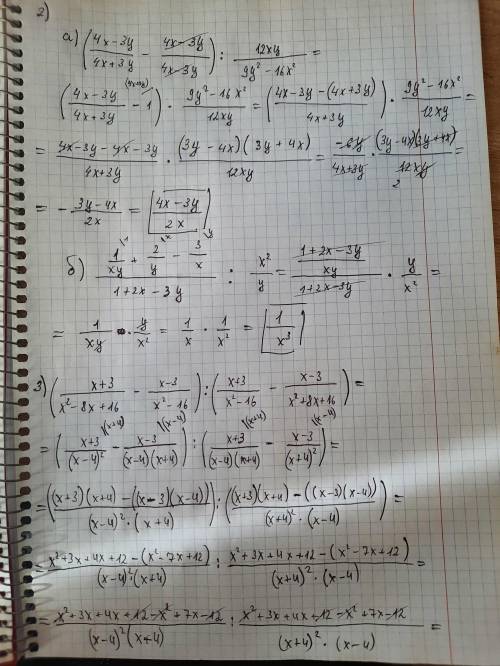 2)
а) ((4x-3y)/(4x+3y) - (4x-3y)/(4x-3y)) : 12xy/(9y²-16x²) =
((4x-3y)/(4x+3y) - 1 (4x+3y)) · (9y²-16x²)/12xy = ((4x-3y-(4x+3y))/(4x+3y)) · (9y²-16x²)/12xy =
= (4x-3y-4x-3y)/(4x+3y) · (3y-4x)(3y+4x)/12xy = -6y/(4x+3y) · (3y-4x)(3y+4x)/12xy 2 =
= - (3y-4x)/2x = (4x-3y)/2x
б) (1/xy |1 + 2/y |x - 3/x |y)/(1+2x-3y) : x²/y = ((1+2x-3y)/xy)/(1+2x-3y) · y/x² =
= 1/xy · y/x² = 1/x · 1/x² = 1/x³
3) ((x+3)/(x²-8x+16) - (x-3)/(x²-16)) : ((x+3)/(x²-16) - (x-3)/(x²+8x+16)) =
= ((x+3)/(x-4)² |(x+4) - (x-3)/((x-4)(x+4)) |(x-4)) : ((x+3)/((x-4)(x+4)) |(x+4) - (x-3)/(x+4)² |(x-4)) =
= (((x+3)(x+4) - ((x-3)(x-4)))/((x-4)²·(x+4))) : (((x+3)(x+4) - ((x-3)(x-4)))/((x+4)²·(x-4))) =
= (x²+3x+4x+12-(x²-7x+12))/((x-4)²(x+4)) : (x²+3x+4x+12-(x²-7x+12))/((x+4)²·(x-4)) =
= (x²+3x+4x+12-x²+7x-12)/((x-4)²(x+4)) : (x²+3x+4x+12-x²+7x-12)/((x+4)²·(x-4)) =